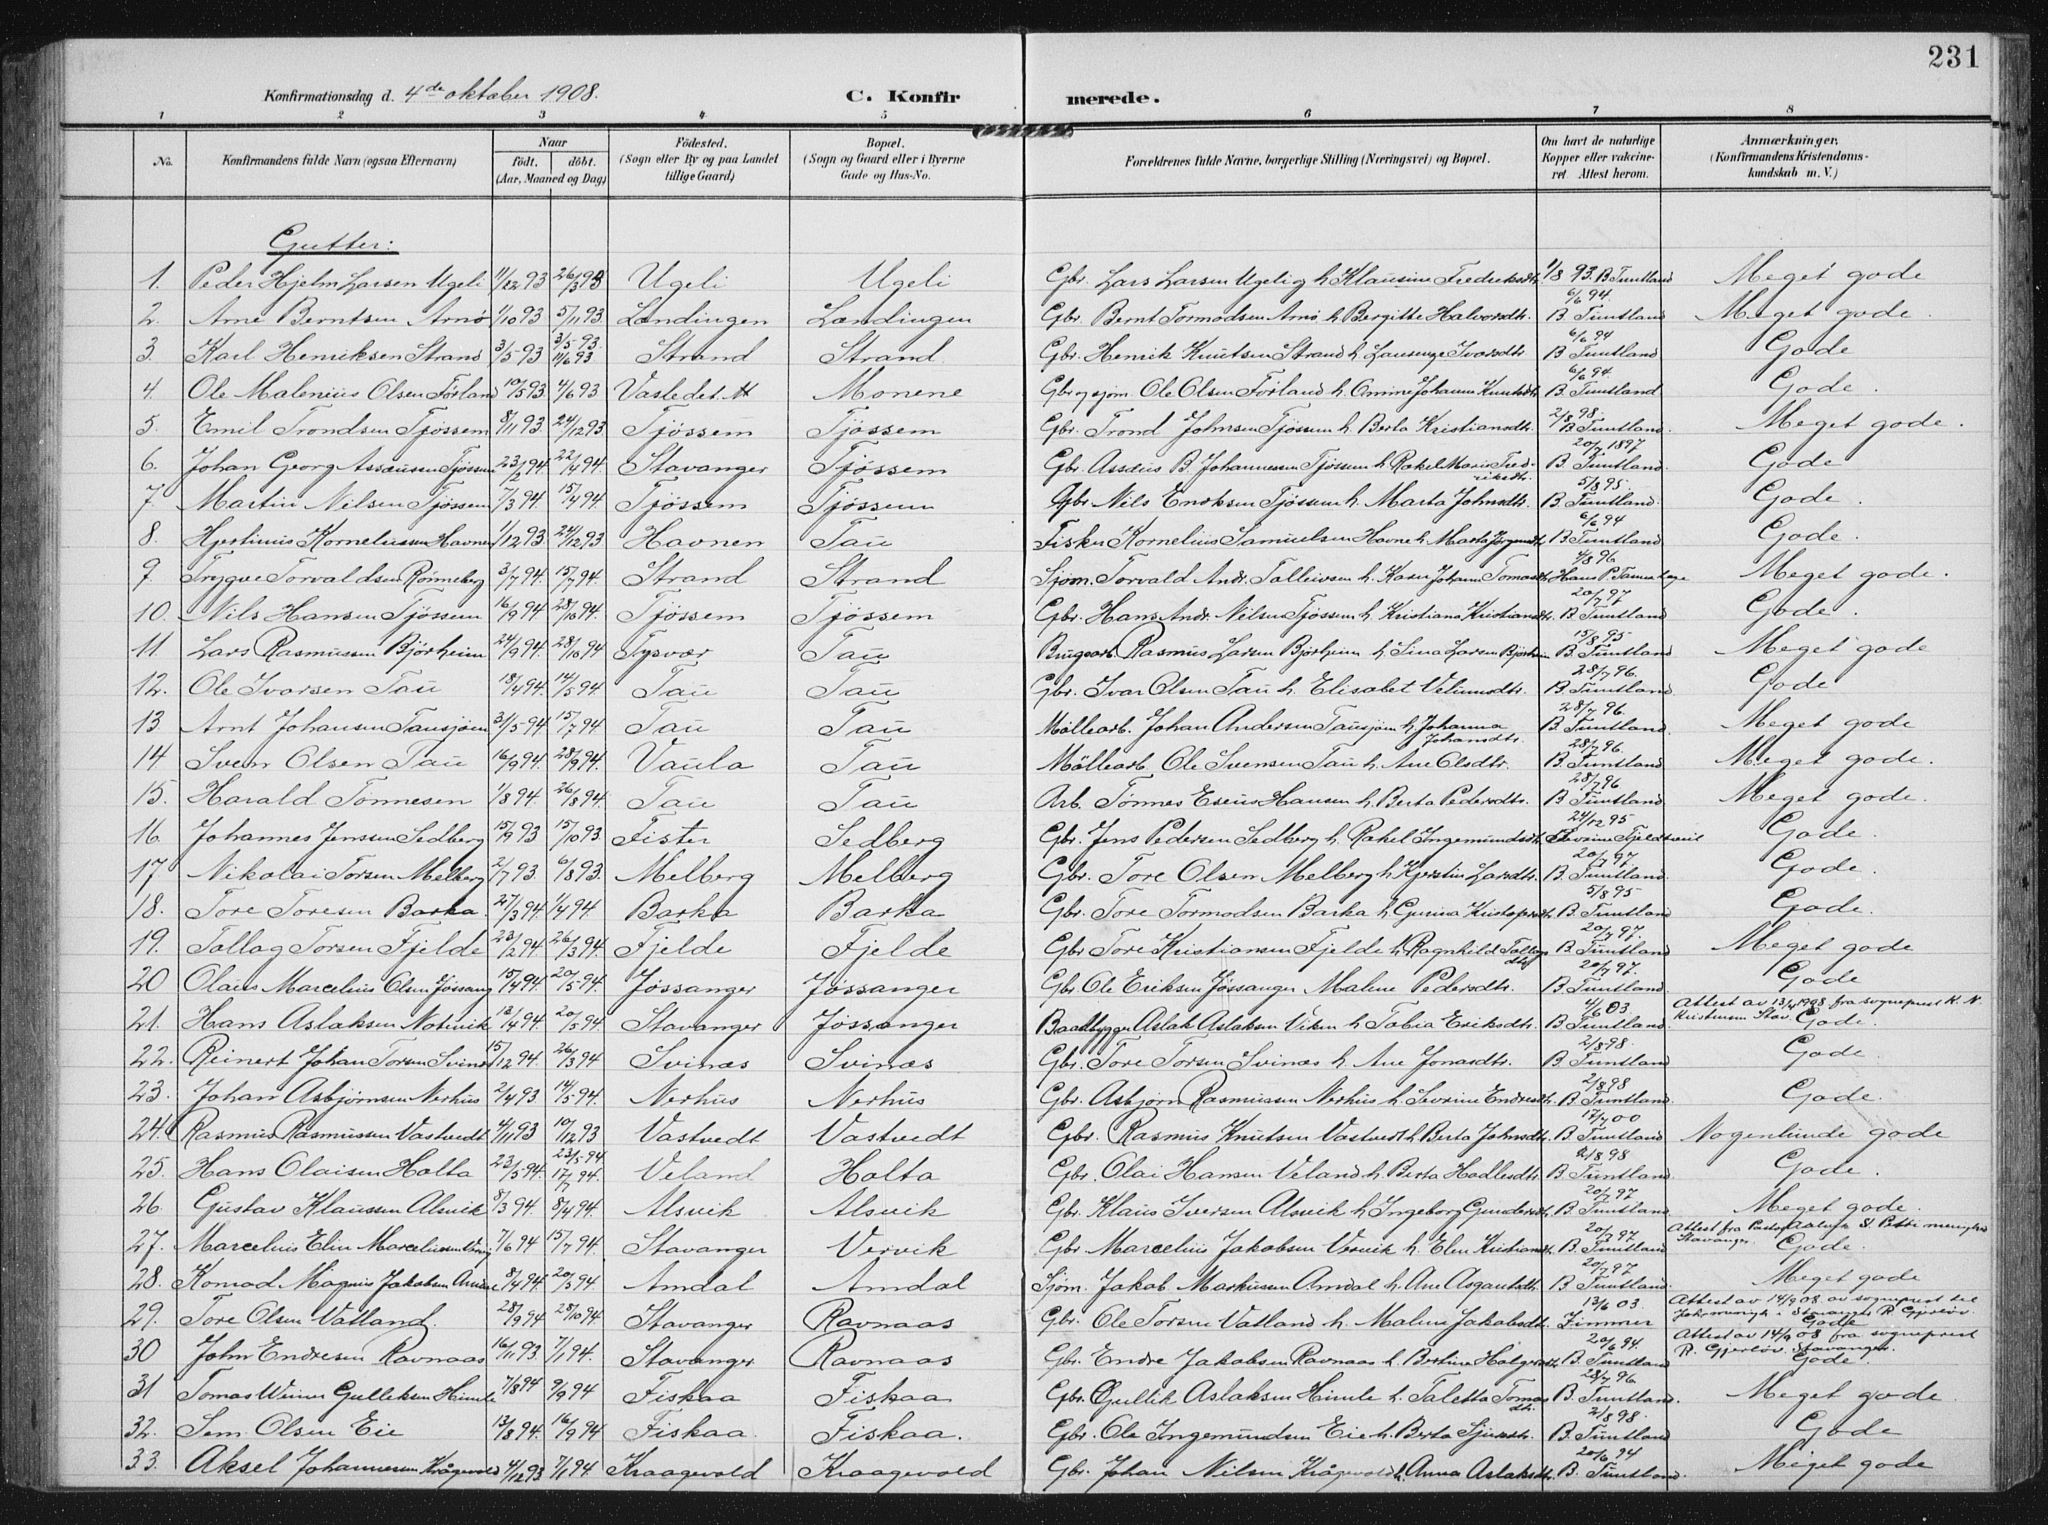 231
Konfirmationsdag d. 4de oktober 1908. C. Konfir merede.
1 2 3 4 5 6 7 8
No. Konfirmandens fulde Navn (ogsaa Efternavn) Naar født, døbt. (Aar, Maaned og Dag) Födested. (Sogn eller By og paa Landet tillige Gaard) Bopæl. (Sogn og Gaard eller i Byerne Gade og Hus-No. Forældrenes fulde Navne, borgerlige Stilling (Næringsvei) og Bopæl. Om havt de naturlige Kopper eller vakcineret. Attest herom. Anmærkninger. (Konfirmandens Kristendomskundskab m. V.)
Gutter:
1. Peder Hjelm Larsen Ugeli 11/12 93 26/3 93 Ugeli Ugeli Gbr. Lars Larsen Ugeli og h. Klausine Fredriksdtr. 1/8 93. B. Tuntland Meget gode
2. Arne Berntsen Arnø 1/10 93 5/11 93 Lændingen Lændingen Gbr. Bernt Tormodsen Arnø h. Bergitte Halvorsdtr. 6/6 94. B. Tuntland Meget gode.
3. Karl Henriksen Strand 3/5 93 3/5 93 11/6 93 Strand Strand Gbr. Henrik Knutsen Strand h. Ivarsdtr. 6/6 94 B. Tuntland Gode
4. Ole Malenius Olsen Førland 10/5 93 4/6 93 Monene Gbr og sjøm. Ole Olsen Førland h. Omine Johanne Knutsdtr. 6/6 94. B. Tuntland Gode.
5. Emil Trondsen Tjøssem 8/11 93. 24/12 93 Tjøssem Tjøssem Gbr. Trond Johnsen Tjøssem h. Berta Kristiansdtr. 2/8 98. B. Tuntland. Meget gode.
6. Johan Georg Assæusen Tjøssem 23/2 94. 22/4 94. Stavanger Tjøssem Gbr. Assæus B. Johannessen Tjøssem h. Rakel Marie Fredriksdtr. 20/7 1897 B. Tuntland. Gode
7. Martin Nilsen Tjøssem 7/3 94. 15/4 94. Tjøssem Tjøssem Gbr Nils Eriksen Tjøssem h. Marta Johnsdtr. 5/8 95. B. Tuntland. Gode.
8. Hjertinius Korneliussen Havnen 1/12 93. 24/12 93 Havnen Tau Fisker Kornelius Samuelsen Havne h. Marta Jørgensdtr. 6/6 94 B. Tuntland Gode.
9. Trygve Torvaldsen Rønneberg 3/7 94. 15/7 94. Strand Strand Sjøm. Torvald Andr. Tolleivsen h. Karen Johanne Tomasdtr. 4/8 96. Hans P. Meget gode.
10. Nils Hansen Tjøssem 16/9 94 28/10 94. Tjøssem Tjøssem Gbr. Hans Andr. Nilsen Tjøssem h. Kristiane Kristiansdtr. 20/7 97 B. Tuntland Gode.
11. Lars Rasmussen Bjørheim 24/9 94. 28/10 94 Tysvær Tau Brugsarb. Rasmus Larsen Bjørheim h. Sina Larsen Bjørheim 15/8 95 B. Tuntland Meget gode
12. Ole Ivarsen Tau 18/4 94. 14/5 94 Tau Tau Gbr. Ivar Olsen Tau h. Elisabet Velumsdtr. 28/7 96. B. Tuntland Gode
13 Arnt Johansen Tausjøen 31/5 94 15/7 94 Tau Tau Møllearb. Johan Andersen Tausjøen h. Johanna Johansdtr. 28/7 96. B. Tuntland Meget gode
14 Sven Olsen Tau 16/9 94. 28/9 94. Vaula Tau Møllearb Ole Svensen Tau h. Ane Olsdtr. 28/7 96. B. Tuntland Meget gode.
15. Harald Tønnesen 1/8 94. 26/8 94. Tau Tau Arb. Tønnes Eseus Hansen h. Berta Pedersdtr. 28/7 96 B. Tuntland. Meget gode.
16. Johannes Jenssen Sedberg 15/9 93 15/10 93. Fister Sedberg Gbr. Jens Pedersen Sedberg h. Rakel Ingemundsdtr. 24/12 95 Gode.
17 Nikolai Torsen Melberg 2/7 93. 6/8 93. Melberg Melberg Gbr. Tore Olsen Melberg h. Kjerstin Larsdtr. 20/7 97 B. Tuntland. Gode.
18. Tore Toresen Barka. 27/3 94. 1/4 94. Barka Barka Gbr. Tore Tormodsen Barka h. Gurina Kristofersdtr. 5/8 95 B. Tuntland Gode.
19. Tollag Torsen Fjelde 23/2 94. 26/3 94. Fjelde Fjelde Gbr Tore Kristiansen Fjelde h. Ragnhild Tollagsdtr. 20/7 97. B. Tuntland Meget gode
20 Olaus Marcelius Olsen Jøssang 15/4 94. 20/5 94. Jøssanger Jøssanger Gbr. Ole Eriksen Jøssanger Malene Pedersdtr. 20/7 97. B. Tuntland Gode
21. Hans Aslaksen Notvik 13/4 94. 20/5 94. Stavanger Jøssanger Baadbygger Aslak Aslaksen Viken h. Tobia Eriksdtr. 4/6 03 B. Tuntland. Attest av 13/4 1908 fra sogneprest K. N. Kristensen Stav. Gode.
22. Reinert Johan Torsen Svinæs 15/12 94. 26/3 94 Svinæs Svinæs Gbr. Tore Torsen Svinæs h. Ane Jonasdtr. 2/8 98. B. Tuntland Gode
23. Johan Asbjørnsen Nerhus 2/4 93 14/5 94. Nerhus Nerhus Gbr. Asbjørn Rasmussen Nerhus h. Severine Endresdtr. 2/8 98 B. Tuntland Gode.
24. Rasmus Rasmussen Vastvedt 4/11 93 10/12 93 Vastvedt Vastvedt Gbr. Rasmus Knutsen Vastvedt h. Berta Johnsdtr. 17/7 00 B. Tuntland Nogenlunde gode
25. Hans Olaisen Holta 23/5 94. 23/5 94 17/7 94. Veland Holta Gbr. Olai Hansen Veland h. Berta Hadlesdtr. 2/8 98 B. Tuntland. Gode.
26. Gustav Klaussen Alsvik 8/3 94. 8/4 94. Alsvik Alsvik Gbr. Klaus Iversen Alsvik h. Ingeborg Gundersdtr. 20/7 97 B. Tuntland. Meget gode.
27. Marcelius Elin Marceliussen 7/6 94 15/7 94. Stavanger Vervik Gbr Marcelius Jakobsen Vervik h. Elen Kristiansdtr. 20/7 97 B. Tuntland Attest fra Pastor St. Petri menighed Stavanger. Gode.
28. Konrad Magnus Jakobsen Amdal 8/4 94. 20/5 94. Amdal Amdal Sjøm. Jakob Markussen Amdal h. Ane Asgautsdtr. 20/7 97 B. Tuntland. Meget gode
29. Tore Olsen Vatland. 28/9 94 28/10 94. Stavanger Ravnaas Gbr. Ole Torsen Vatland h. Malene Jakobsdtr. 13/6 03. Zimmer Attest av 14/9 08 av sogneprest til Joh. menigh. i Stavanger R. Gjerløv. Gode
30 John Endresen Ravnaas 16/11 93 7/1 94. Stavanger Ravnaas Gbr. Endre Jakobsen Ravnaas h. Bertine Holgersdtr. 20/6 94. B. Tuntland Attest av 14/9 08 fra sogneprest R. Gjerløv. Stavanger. Gode.
31 Tomas Gulleksen Himle 7/8 94 9/9 94 Fiskaa Fiskaa Gbr. Gullik Aslaksen Himle h. Taletta Tomasdtr. 28/7 96 B. Tuntland Meget gode.
32. Sem Olsen Eie 13/8 94. 16/9 94 Fiskaa. Fiskaa. Gbr. Ole Ingemundsen Eie h. Berta Sjursdtr. 2/8 98. B. Tuntland Gode
33. Aksel Johannesen Krågevold 4/12 93 7/1 94. Kraagevold Kraagevold Gbr. Johan Nilsen Krågevold h. Anna Aslaksdtr. 20/6 94 B. Tuntland. Meget gode